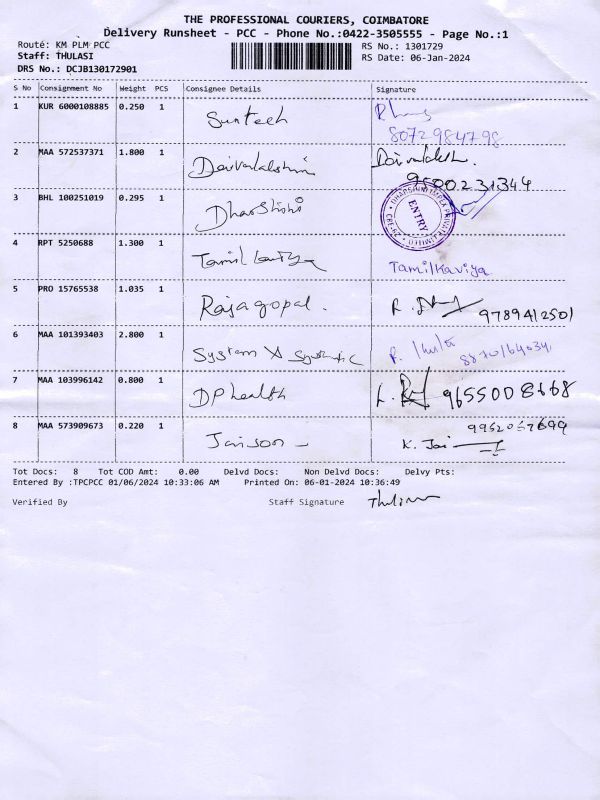 THE PROFESSIONAL COURIERS, COIMBATORE
Delivery Runsheet - PCC - Phone No.:0422-3505555 - Page No.:1
Route: KM PLM PCC
RS No.: 1301729
Staff: THULASI
RS Date: 06-Jan-2024
DRS No.: DCJB130172901
S No Consignment No Weight PCS Consignee Details Signature
1 KUR 6000108885 0.250 1 Suntech
8072984798
2 MAA 572537371 1.800 1 Daivalakshmi
9500231344
3 BHL 100251019 0.295 1 Dharshini
ENTRY
4 RPT 5250688 1.300 1 Tamil Tamilkaviya
5 PRO 15765538 1.035 1 Rajagopal. 9789412501
6 MAA 101393403 2.800 1 System
7 MAA 103996142 0.800 1 DP health 9655008668
8 MAA 573909673 0.220 1 Jaison K. Jai
Tot Docs: 8 Tot COD Amt: 0.00 Delvd Docs: Non Delvd Docs: Delvy Pts:
Entered By :TPCPCC 01/06/2024 10:33:06 AM Printed On: 06-01-2024 10:36:49
Verified By Staff Signature